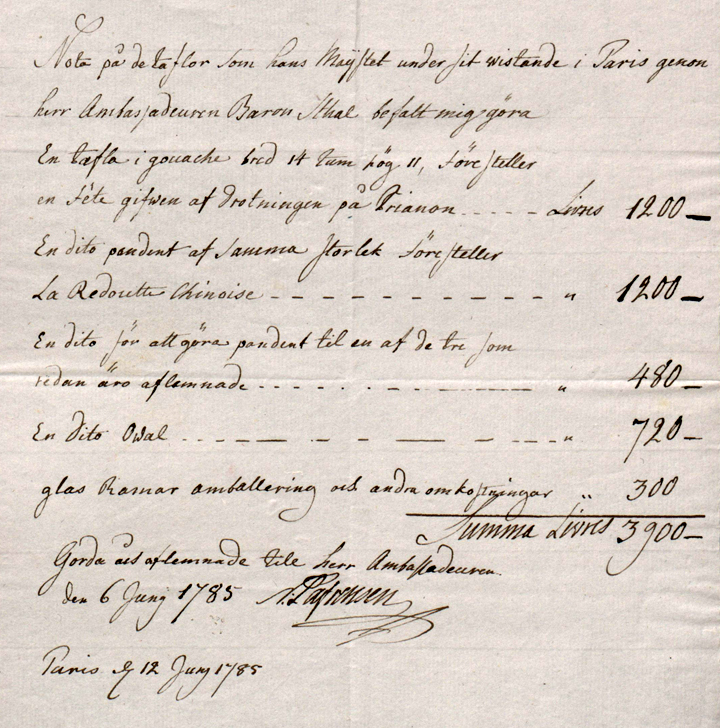 Nota på de taflor som hans Maÿstet under sit wistande i Paris genom
herr Ambassadeuren Baron Sthal befalt mig göra
En tafla i gouache bred 14 tum hög 11, Föresteller
en Féte gifwen af Drotningen på Trianon ..... Livres 1200—
En dito pendent af samma storlek Föresteller
La Redoutte Chinoise - - - - - - - - - - - „ 1200—
En dito för att göra pendent til en af de tre som
redan äro aflemnade .... - - - - - - „ 480—
En dito Owal ... — — - — — - — „ 720—
glas Ramar amballering och andra omkostningar „ 300
Summa Livres 3900—
Gorda och aflemnade till herr Ambassadeuren
den 6 Junÿ 1785
Paris 12 Junÿ 1785